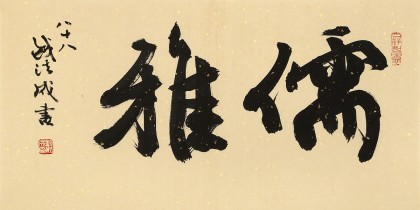 儒雅
八十八
战法成書